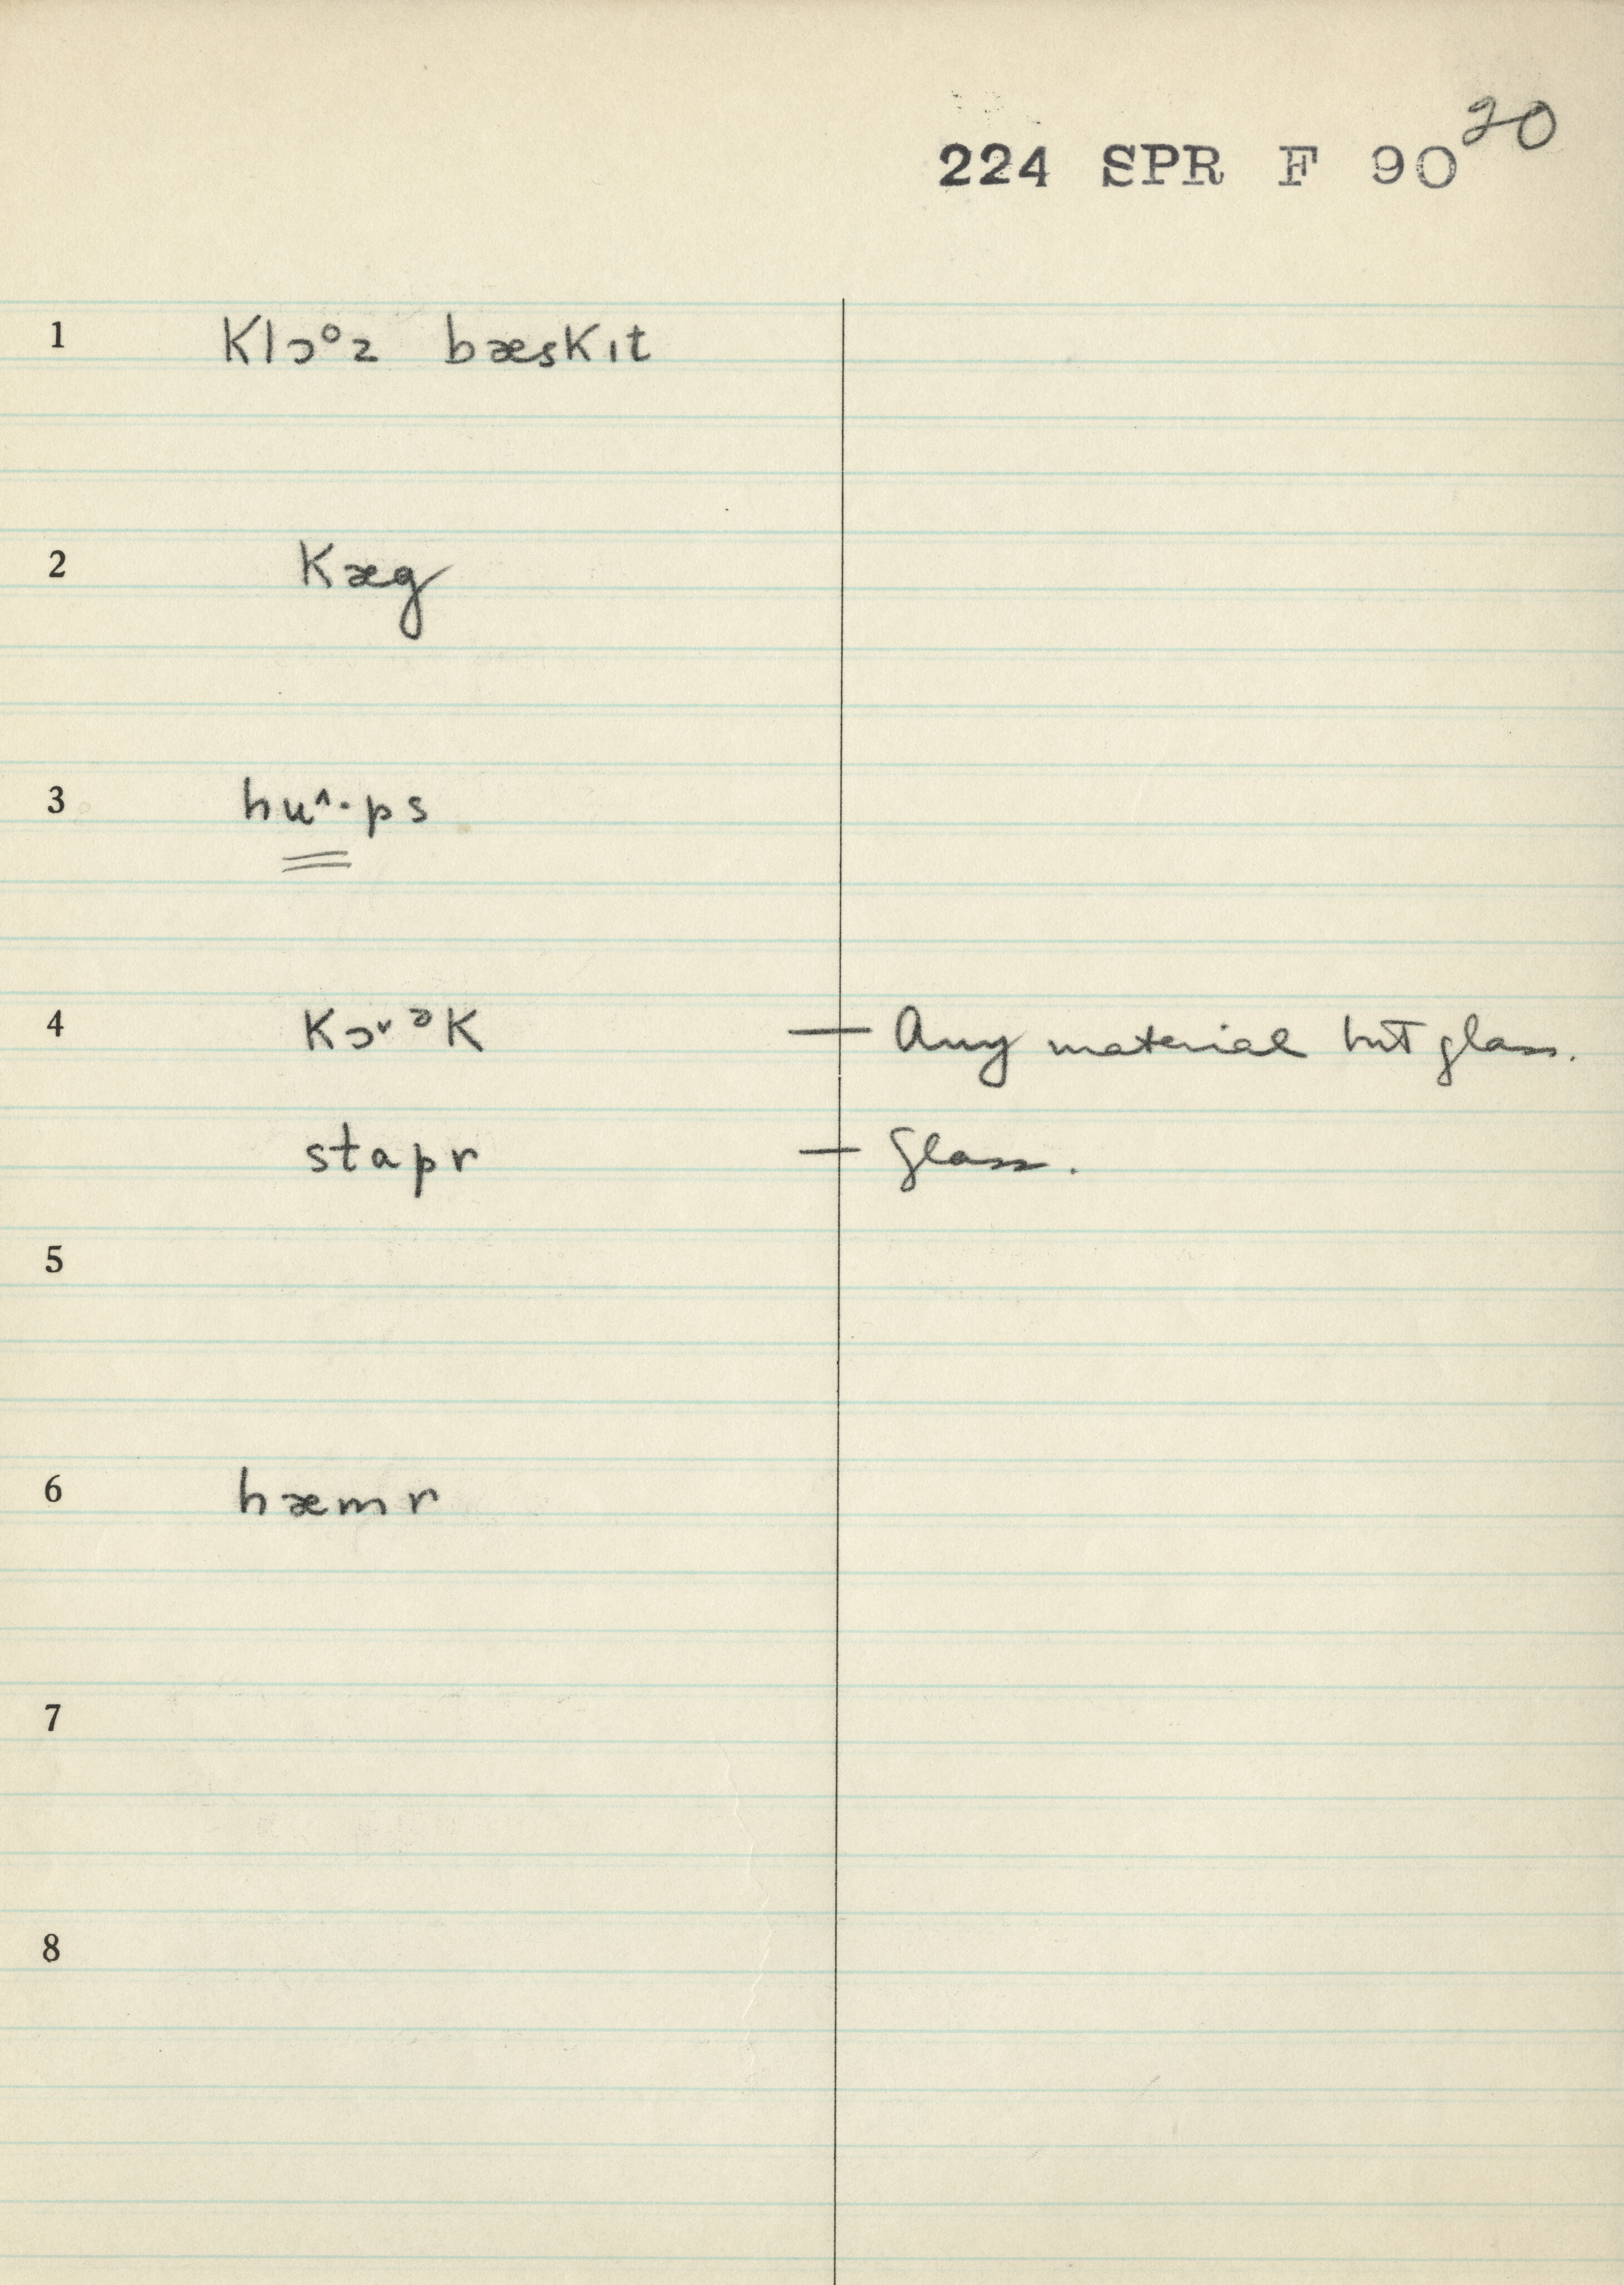 20
224 SPR F 90
1 klɔºz bæskɪt
2 kæg
3 hu^·ps
4 kɔ˅ᵊk — Any material but glass.
stapr — Glass.
5
6 hæmr
7
8